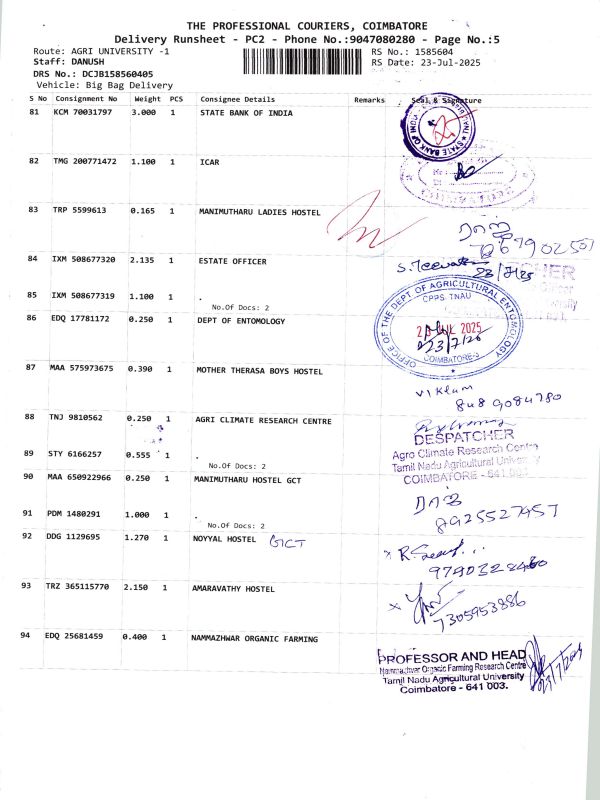 THE PROFESSIONAL COURIERS, COIMBATORE
Delivery Runsheet - PC2 - Phone No.:9047080280 - Page No.:5
Route: AGRI UNIVERSITY -1
RS No.: 1585604
Staff: DANUSH
RS Date: 23-Jul-2025
DRS No.: DCJB158560405
Vehicle: Big Bag Delivery
S No Consignment No Weight PCS Consignee Details Remarks Seal & Signature
81 KCM 70031797 3.000 1 STATE BANK OF INDIA
STATE BANK OF INDIA
82 TMG 200771472 1.100 1 ICAR
83 TRP 5599613 0.165 1 MANIMUTHARU LADIES HOSTEL
84 IXM 508677320 2.135 1 ESTATE OFFICER
23/7/25
85 IXM 508677319 1.100 1 .
No.Of Docs: 2
86 EDQ 17781172 0.250 1 DEPT OF ENTOMOLOGY
OFFICE OF THE DEPT. OF AGRICULTURAL ENTOMOLOGY
CPPS. TNAU
COIMBATORE-3
87 MAA 575973675 0.390 1 MOTHER THERASA BOYS HOSTEL
Vikram
8489084780
88 TNJ 9810562 0.250 1 AGRI CLIMATE RESEARCH CENTRE
DESPATCHER
Agro Climate Research Centre
Tamil Nadu Agricultural University
COIMBATORE - 641 003.
89 STY 6166257 0.555 1 .
No.Of Docs: 2
90 MAA 650922966 0.250 1 MANIMUTHARU HOSTEL GCT
ராஜ்
8925527457
91 PDM 1480291 1.000 1 .
No.Of Docs: 2
92 DDG 1129695 1.270 1 NOYYAL HOSTEL GCT
93 TRZ 365115770 2.150 1 AMARAVATHY HOSTEL
7305953886
94 EDQ 25681459 0.400 1 NAMMAZHWAR ORGANIC FARMING
PROFESSOR AND HEAD
Nammazhvar Organic Farming Research Centre
Tamil Nadu Agricultural University
Coimbatore - 641 003.